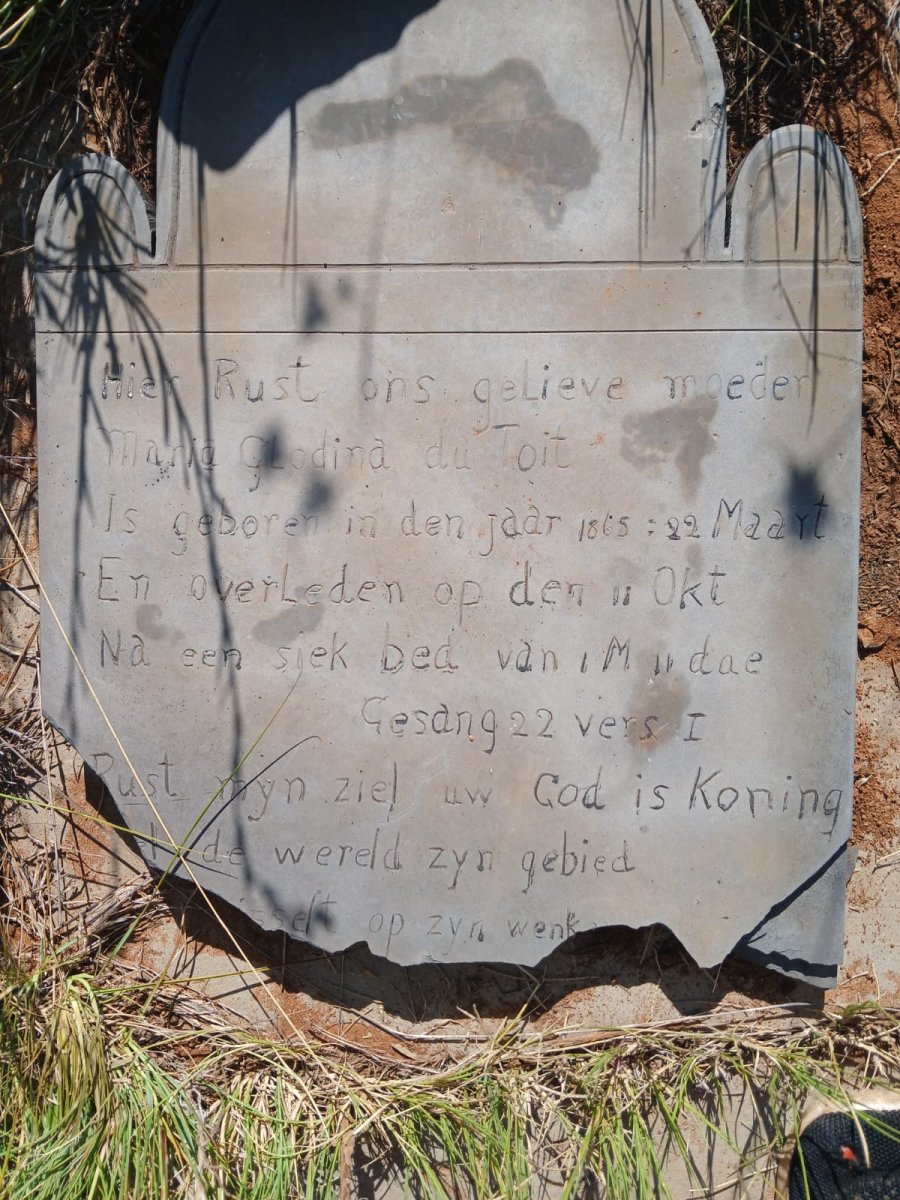 Hier Rust ons gelieve moeder
Maria Glodina du Toit
Is geboren in den jaar 1865 : 22 Maart
En overLeden op den 11 Okt
Na een siek bed van 1 M 11 dae
Gesang 22 vers I
Rust mijn ziel uw God is Koning
de wereld zyn gebied
op zyn wenk